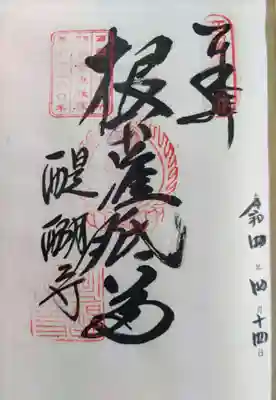 令和四年四月十四日
奉拝
根本准胝尊
醍醐寺